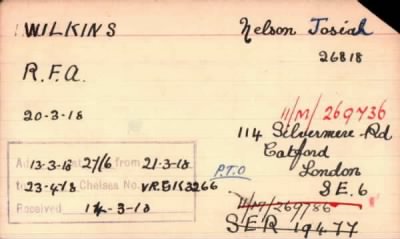 WILKINS
Nelson Josiah
26818
R.F.A.
20-3-18
11/M/269736
114 Silvermere Rd
Catford
London
S E. 6
Ad 13-3-18 27/6 from 21-3-18
P.T.O
to 23-4-18 Chelsea No. VRE1K3266
Received 14-3-18
11/M/269786
SER 19477